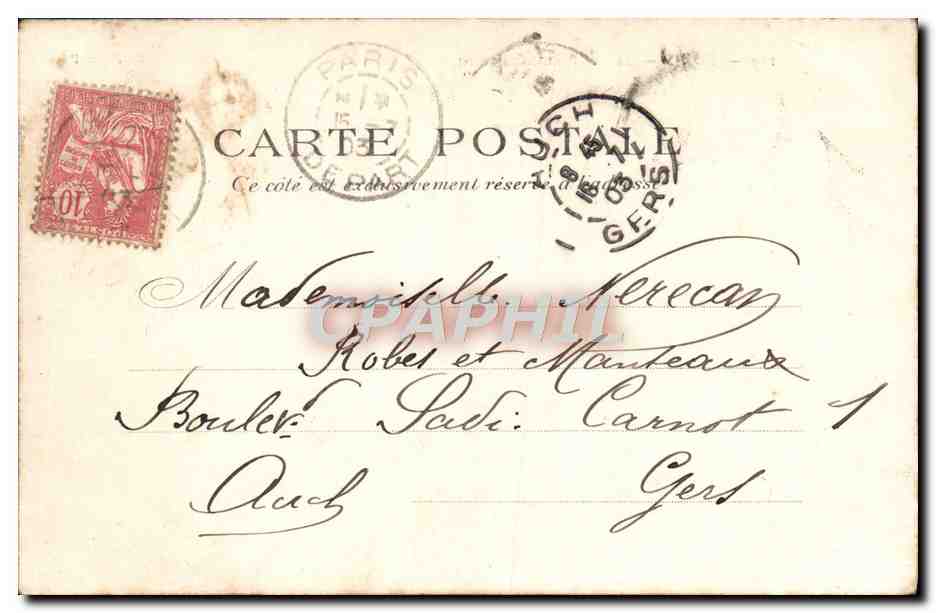 PARIS
DEPART
AUCH
GERS
10
CARTE POSTALE
Ce côté est exclusivement réservé à l'adresse
Mademoiselle Nerecan
Robes et Manteaux
Boulevd Sadi Carnot 1
Auch Gers
CPAPHIL